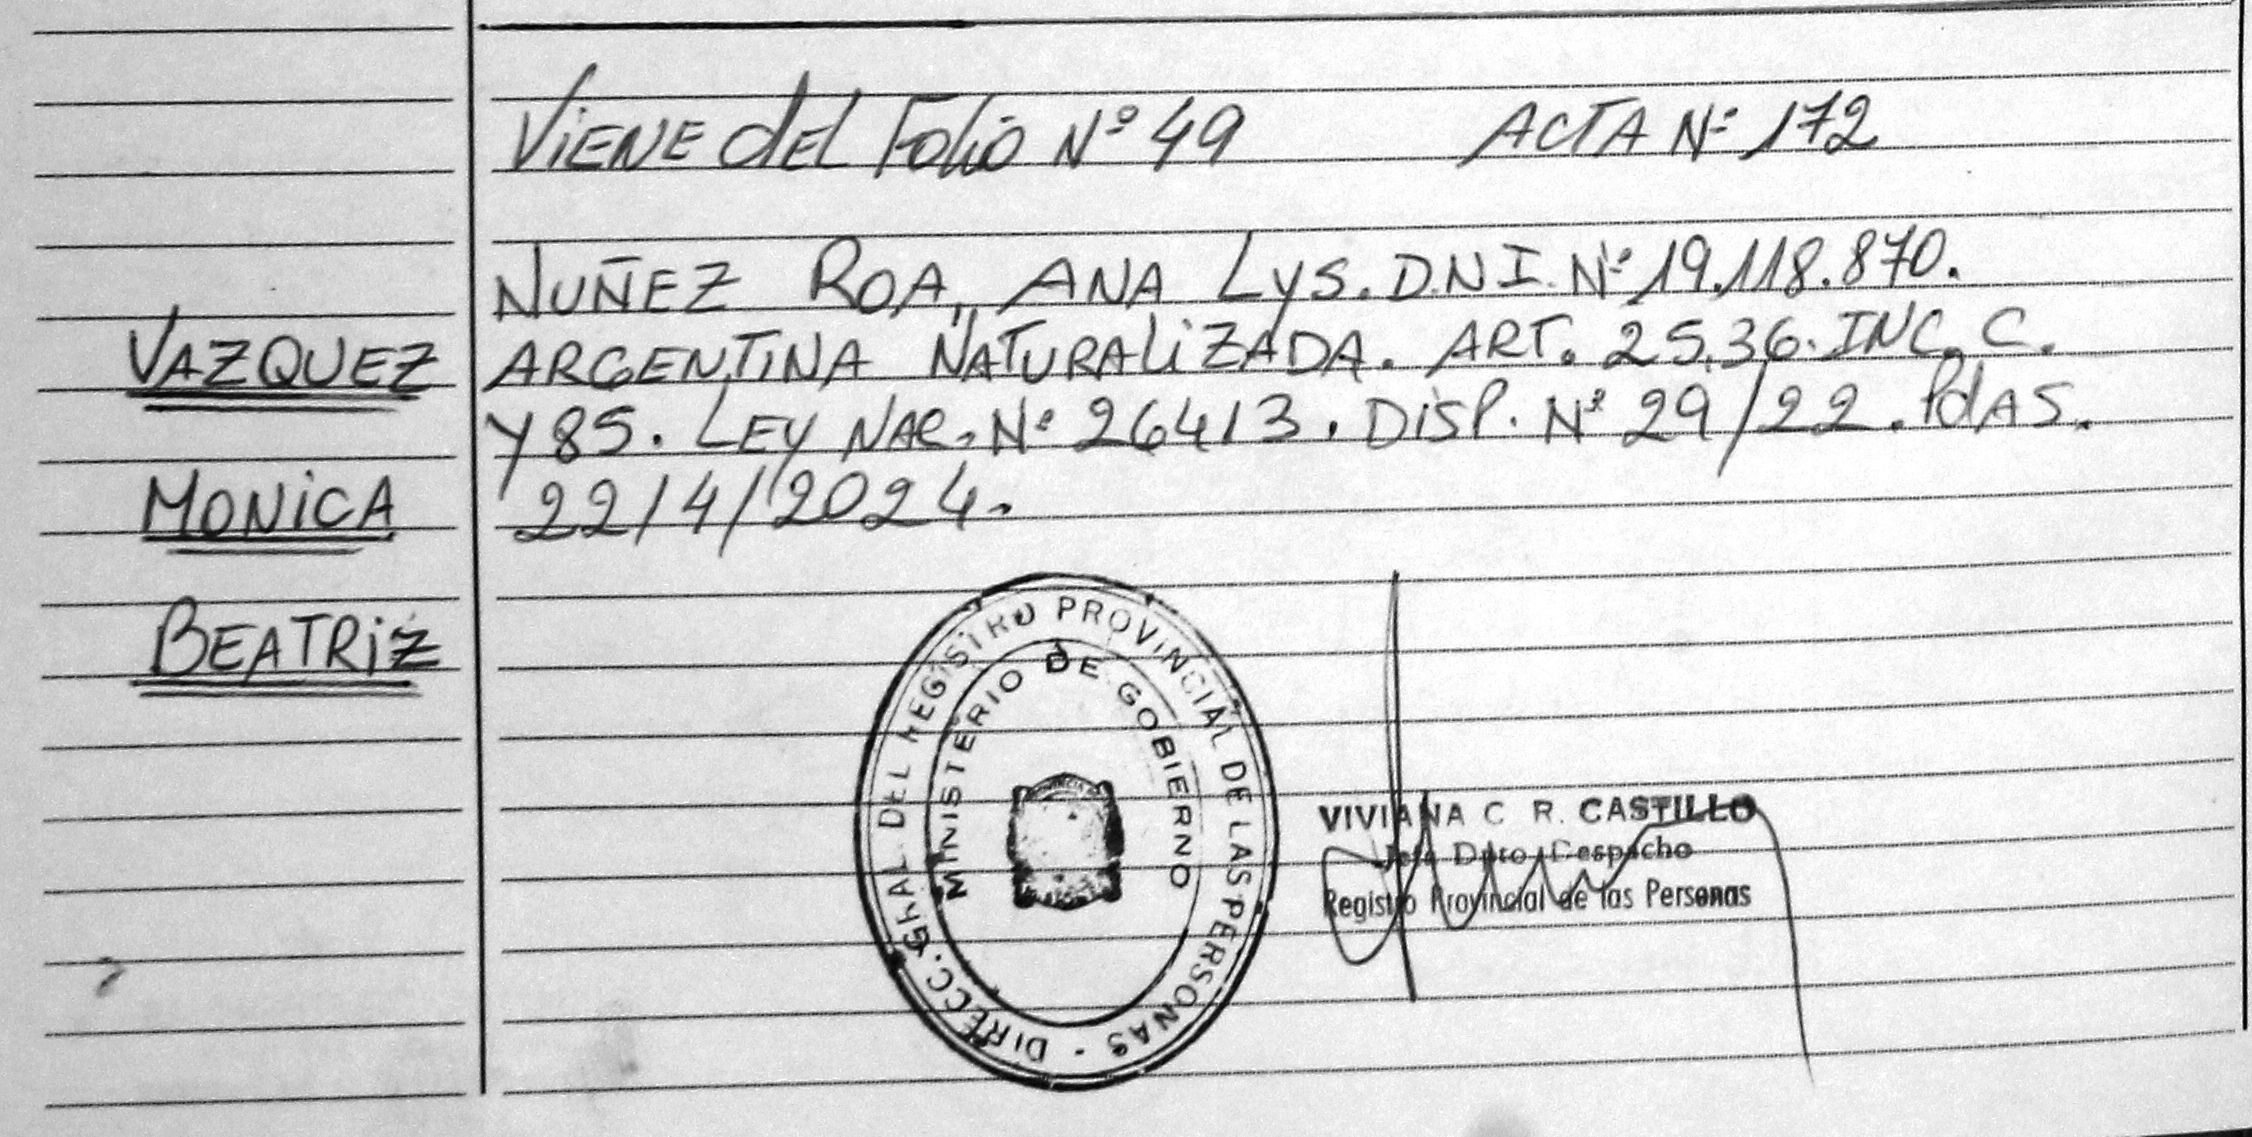 Viene del Folio Nº 49 ACTA Nº 172
NUÑEZ ROA, ANA LYS. D.N.I. Nº 19.118.870.
VAZQUEZ
ARGENTINA NATURALIZADA. ART. 25.36. INC. C.
Y 85. LEY NAC. Nº 26413. DISP. Nº 29/22. Pdas.
MONICA
22/4/2024.
BEATRIZ
DIRECC. GRAL DEL REGISTRO PROVINCIAL DE LAS PERSONAS -
MINISTERIO DE GOBIERNO
VIVIANA C R. CASTILLO
Jefa Dpto Despacho
Registro Provincial de las Personas